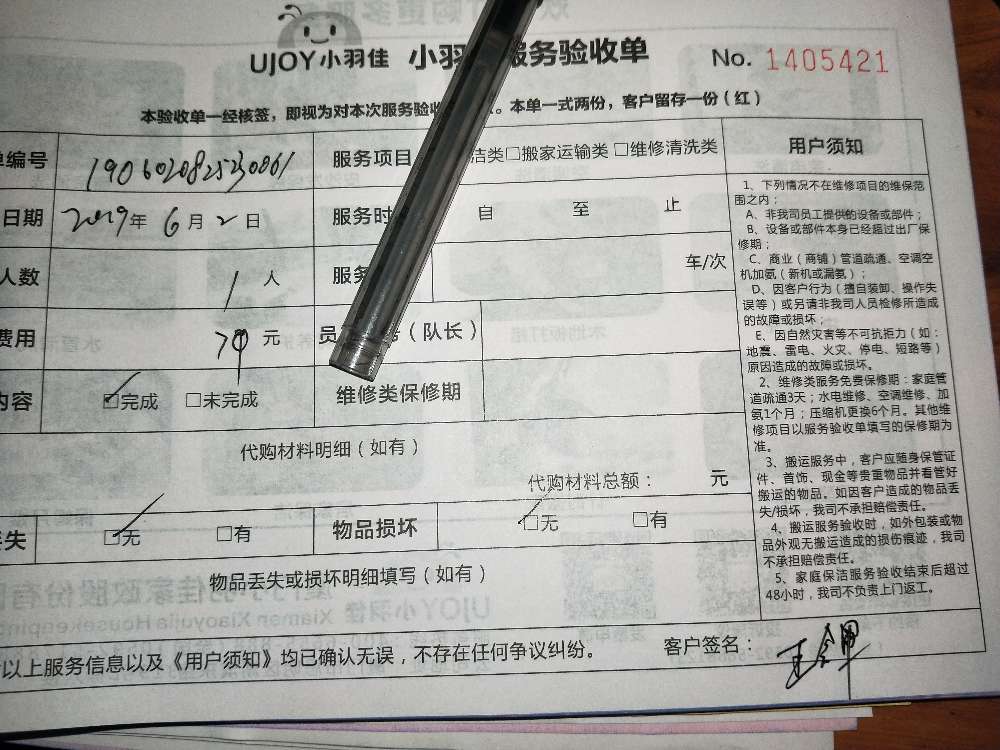 UJOY小羽佳 小羽 服务验收单 No. 1405421
本验收单一经核签，即视为对本次服务验收 。本单一式两份，客户留存一份（红）
单编号 1906020825230061 服务项目 洁类□搬家运输类 □维修清洗类
日期 2019年 6月 2日 服务时 自 至 止
人数 1 人 服务 车/次
费用 79 元 员 号（队长）
内容 ☑完成 □未完成 维修类保修期
代购材料明细（如有）
代购材料总额： 元
丢失 ☑无 □有 物品损坏 ☑无 □有
物品丢失或损坏明细填写（如有）
以上服务信息以及《用户须知》均已确认无误，不存在任何争议纠纷。 客户签名：
用户须知
1、下列情况不在维修项目的维保范
围之内：
A、非我司员工提供的设备或部件；
B、设备或部件本身已经超过出厂保
修期；
C、商业（商铺）管道疏通、空调空
机加氨（新机或漏氨）；
D、因客户行为（擅自装卸、操作失
误等）或另请非我司人员检修所造成
的故障或损坏；
E、因自然灾害等不可抗拒力（如：
地震、雷电、火灾、停电、短路等）
原因造成的故障或损坏。
2、维修类服务免费保修期：家庭管
道疏通3天；水电维修、空调维修、加
氨1个月；压缩机更换6个月。其他维
修项目以服务验收单填写的保修期为
准。
3、搬运服务中，客户应随身保管证
件、首饰、现金等贵重物品并看管好
搬运的物品。如因客户造成的物品丢
失/损坏，我司不承担赔偿责任。
4、搬运服务验收时，如外包装或物
品外观无搬运造成的损伤痕迹，我司
不承担赔偿责任。
5、家庭保洁服务验收结束后超过
48小时，我司不负责上门返工。